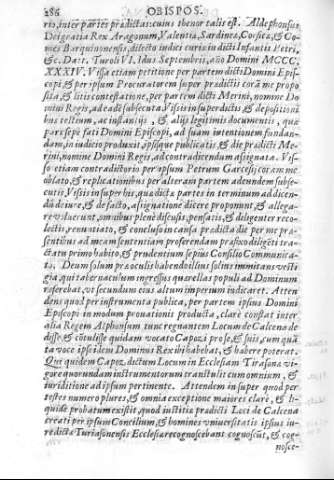 286 OBISPOS.
rio, inter partes predictas: cuius thenor talis est. Aldephonsus
Dei gratia Rex Aragonum, Valentia, Sardinea, Corsica, & Co-
mes Barquinonensis, dilecto iudici curie in dicti Infantis Petri,
&c. Dat. Turoli VI. Idus Septembris, año Domini MCCC.
XXXIV. Vissa etiam petitione per partem dicti Domini Epis-
copi & per ipsum Procuratorem super predictis corā me propo-
sita, & litis contestatione, per partem dicti Merini, nomine Do
mini Regis, ad ea dē subsecuta, Vissis insuper dictis & depositioni
bus testium, ac instantijs, & alijs legitimis documentis, que
pars sepe fati Domini Episcopi, ad suam intentionem fundan-
dam, in iudicio produxit, ipsisque publicatis & die predicti Me-
rini, nomine Domini Regis, ad contradicendum assignata. Vis-
so etiam contradictorio per ipsum Petrum Garcesij coram me
oblato, & replicationibus per alteram partem ad eandem subse-
cutis, Vissis insuper his, que dicta partes in terminum ad dicen-
dū de iure, & de facto, assignatione dicere proponunt, & allega-
re voluerunt, omnibus plenè discusis, pensatis, & diligenter reco-
lectis, renuntiato, & concluso in causa predicta die per me pra-
sentibus ad meam sententiam proferendam prafixo diligēti tra-
ctatu primo habito, & prudentum sepius Consilio Communica-
to. Deum solum præ oculis habendo ellius solius immitans vesti-
gia, qui tabernaculum ingressus quarellas populi ad Dominum
referebat vt secundum eius altum imperium indicaret. Atten-
dens quod per instrumenta publica, per partem ipsius Domini
Episcopi in modum prouationis producta, clarè constat inter
alia Regem Alphonsum tunc regnantem Locum de Calcena de
disse, & cōtulisse quidam vocato Capozi pro se, & suis, cum quā
ta voce ipse idem Dominus Rex ibi habebat, & habere poterat.
Qui quidem Capoz. dictum Locum in Ecclesiam Tirasonā vi-
gore quorundam instrumentorum transtulit cum omnium, &
iuriditione ad ipsum pertinente. Attendem in super quod per
testes numero plures, & omni a exceptione maiores clarè, & li-
quide probatum existit, quod institia predicti Loci de Calcena
creati per ipsum Concilium, & homines vniuersitatis ipsius iu-
redicta Turiasonensis Ecclesia recognoscebant cognoscūt, & cog-
nosce-